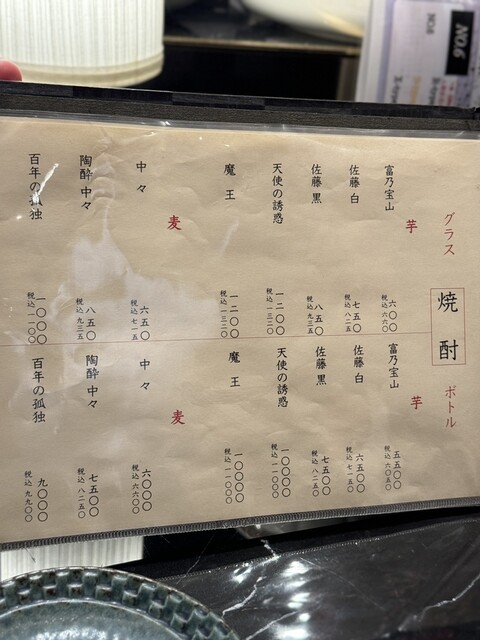 NO.6
NO.6
焼酎
グラス
芋
富乃宝山 六〇〇
税込 六六〇
佐藤 白 七五〇
税込 八二五
佐藤 黒 八五〇
税込 九三五
天使の誘惑 一二〇〇
税込 一三二〇
魔王 一二〇〇
税込 一三二〇
麦
中々 六五〇
税込 七一五
陶酔 中々 八五〇
税込 九三五
百年の孤独 一〇〇〇
税込 一一〇〇
ボトル
芋
富乃宝山 五五〇〇
税込 六〇五〇
佐藤 白 六五〇〇
税込 七一五〇
佐藤 黒 七五〇〇
税込 八二五〇
天使の誘惑 一〇〇〇〇
税込 一一〇〇〇
魔王 一〇〇〇〇
税込 一一〇〇〇
麦
中々 六〇〇〇
税込 六六〇〇
陶酔 中々 七五〇〇
税込 八二五〇
百年の孤独 九〇〇〇
税込 九九〇〇